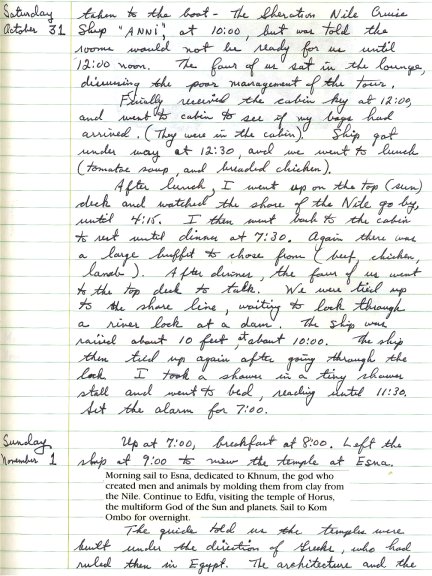 Saturday taken to the boat - The Sheraton Nile Cruise
October 31 Ship "ANNI", at 10:00, but was told the
rooms would not be ready for us until
12:00 noon. The four of us sat in the lounge,
discussing the poor management of the tour.
Finally received the cabin key at 12:00,
and went to cabin to see if my bags had
arrived. (They were in the cabin). Ship got
under way at 12:30, and we went to lunch
(tomatoe soup, and breaded chicken).
After lunch, I went up on the top (sun)
deck and watched the shore of the Nile go by,
until 4:15. I then went back to the cabin
to rest until dinner at 7:30. Again there was
a large buffet to chose from (beef, chicken,
lamb). After dinner, the four of us went
to the top deck to talk. We were tied up
to the shore line, waiting to lock through
a river lock at a dam. The ship was
raised about 10 feet, at about 10:00. The ship
then tied up again after going through the
lock. I took a shower in a tiny shower
stall and went to bed, reading until 11:30.
Set the alarm for 7:00.
Sunday Up at 7:00, breakfast at 8:00. Left the
November 1 ship at 9:00 to view the temple at Esna.
Morning sail to Esna, dedicated to Khnum, the god who
created men and animals by molding them from clay from
the Nile. Continue to Edfu, visiting the temple of Horus,
the multiform God of the Sun and planets. Sail to Kom
Ombo for overnight.
The guide told us the temples were
built under the direction of Greeks, who had
ruled then in Egypt. The architecture and the